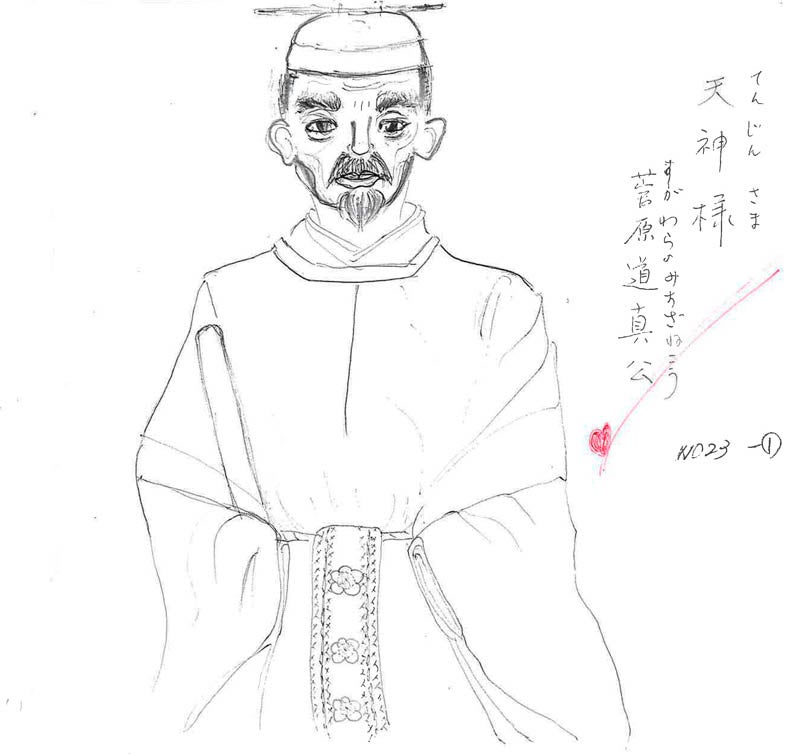 てんじんさま
天神様
すがわらのみちざねこう
菅原道真公
NO23-①